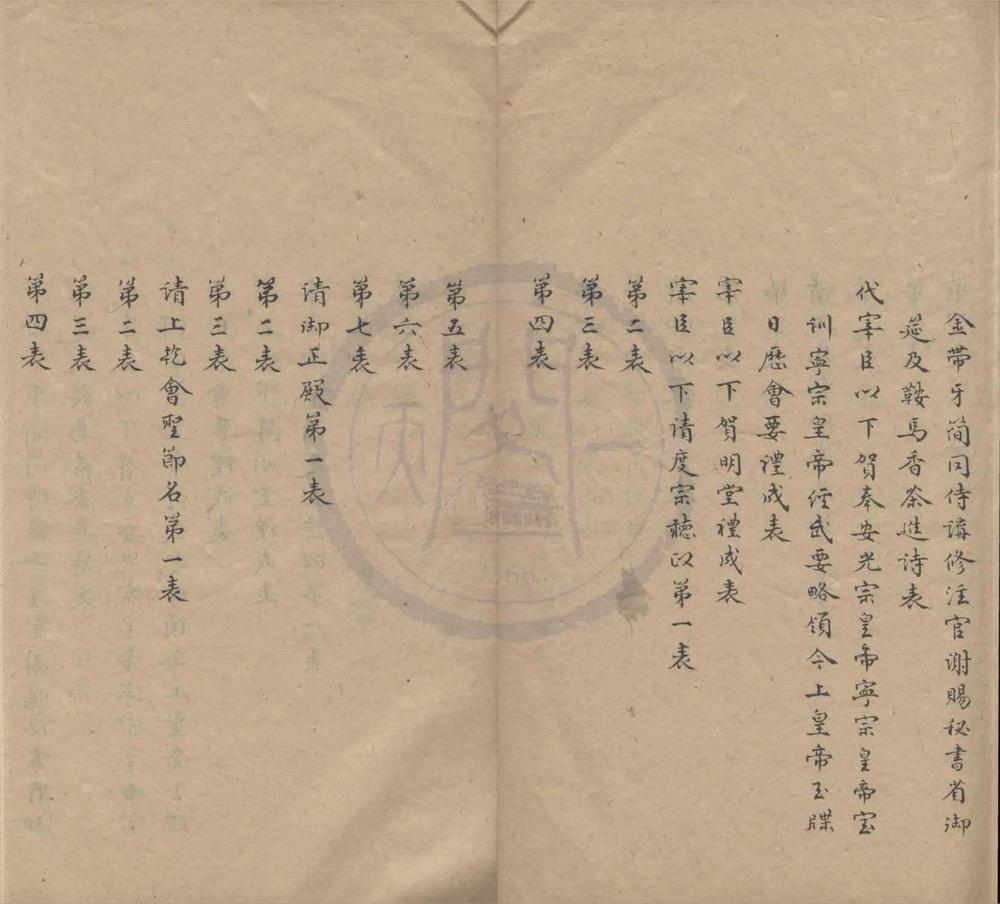 金帶牙簡同侍講修注官谢賜秘書省御
筵及鞍馬香茶進詩表
代宰臣以下賀奉安光宗皇帝寧宗皇帝宝
训寧宗皇帝经武要略領今上皇帝玉牒
日歷會要禮成表
宰臣以下賀明堂禮成表
宰臣以下请度宗聽政第一表
第二表
第三表
第四表
第五表
第六表
第七表
请御正殿第一表
第二表
第三表
请上乾會聖節名第一表
第二表
第三表
第四表